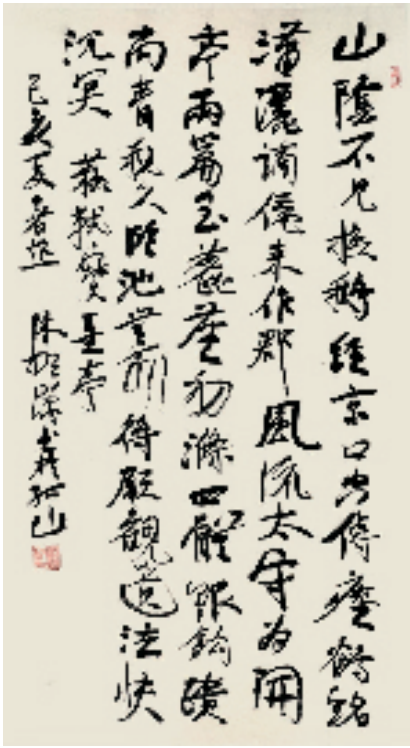 山陰不見換鵝經京口今傳瘞鶴銘
瀟灑謫僊來作郡風流太守為開
亭兩篇玉蕊塵初滌四體銀鉤蘚
尚青我久臨池無所得願觀遺法快
沉冥 蘇軾寶墨亭
己亥夏 陈 山